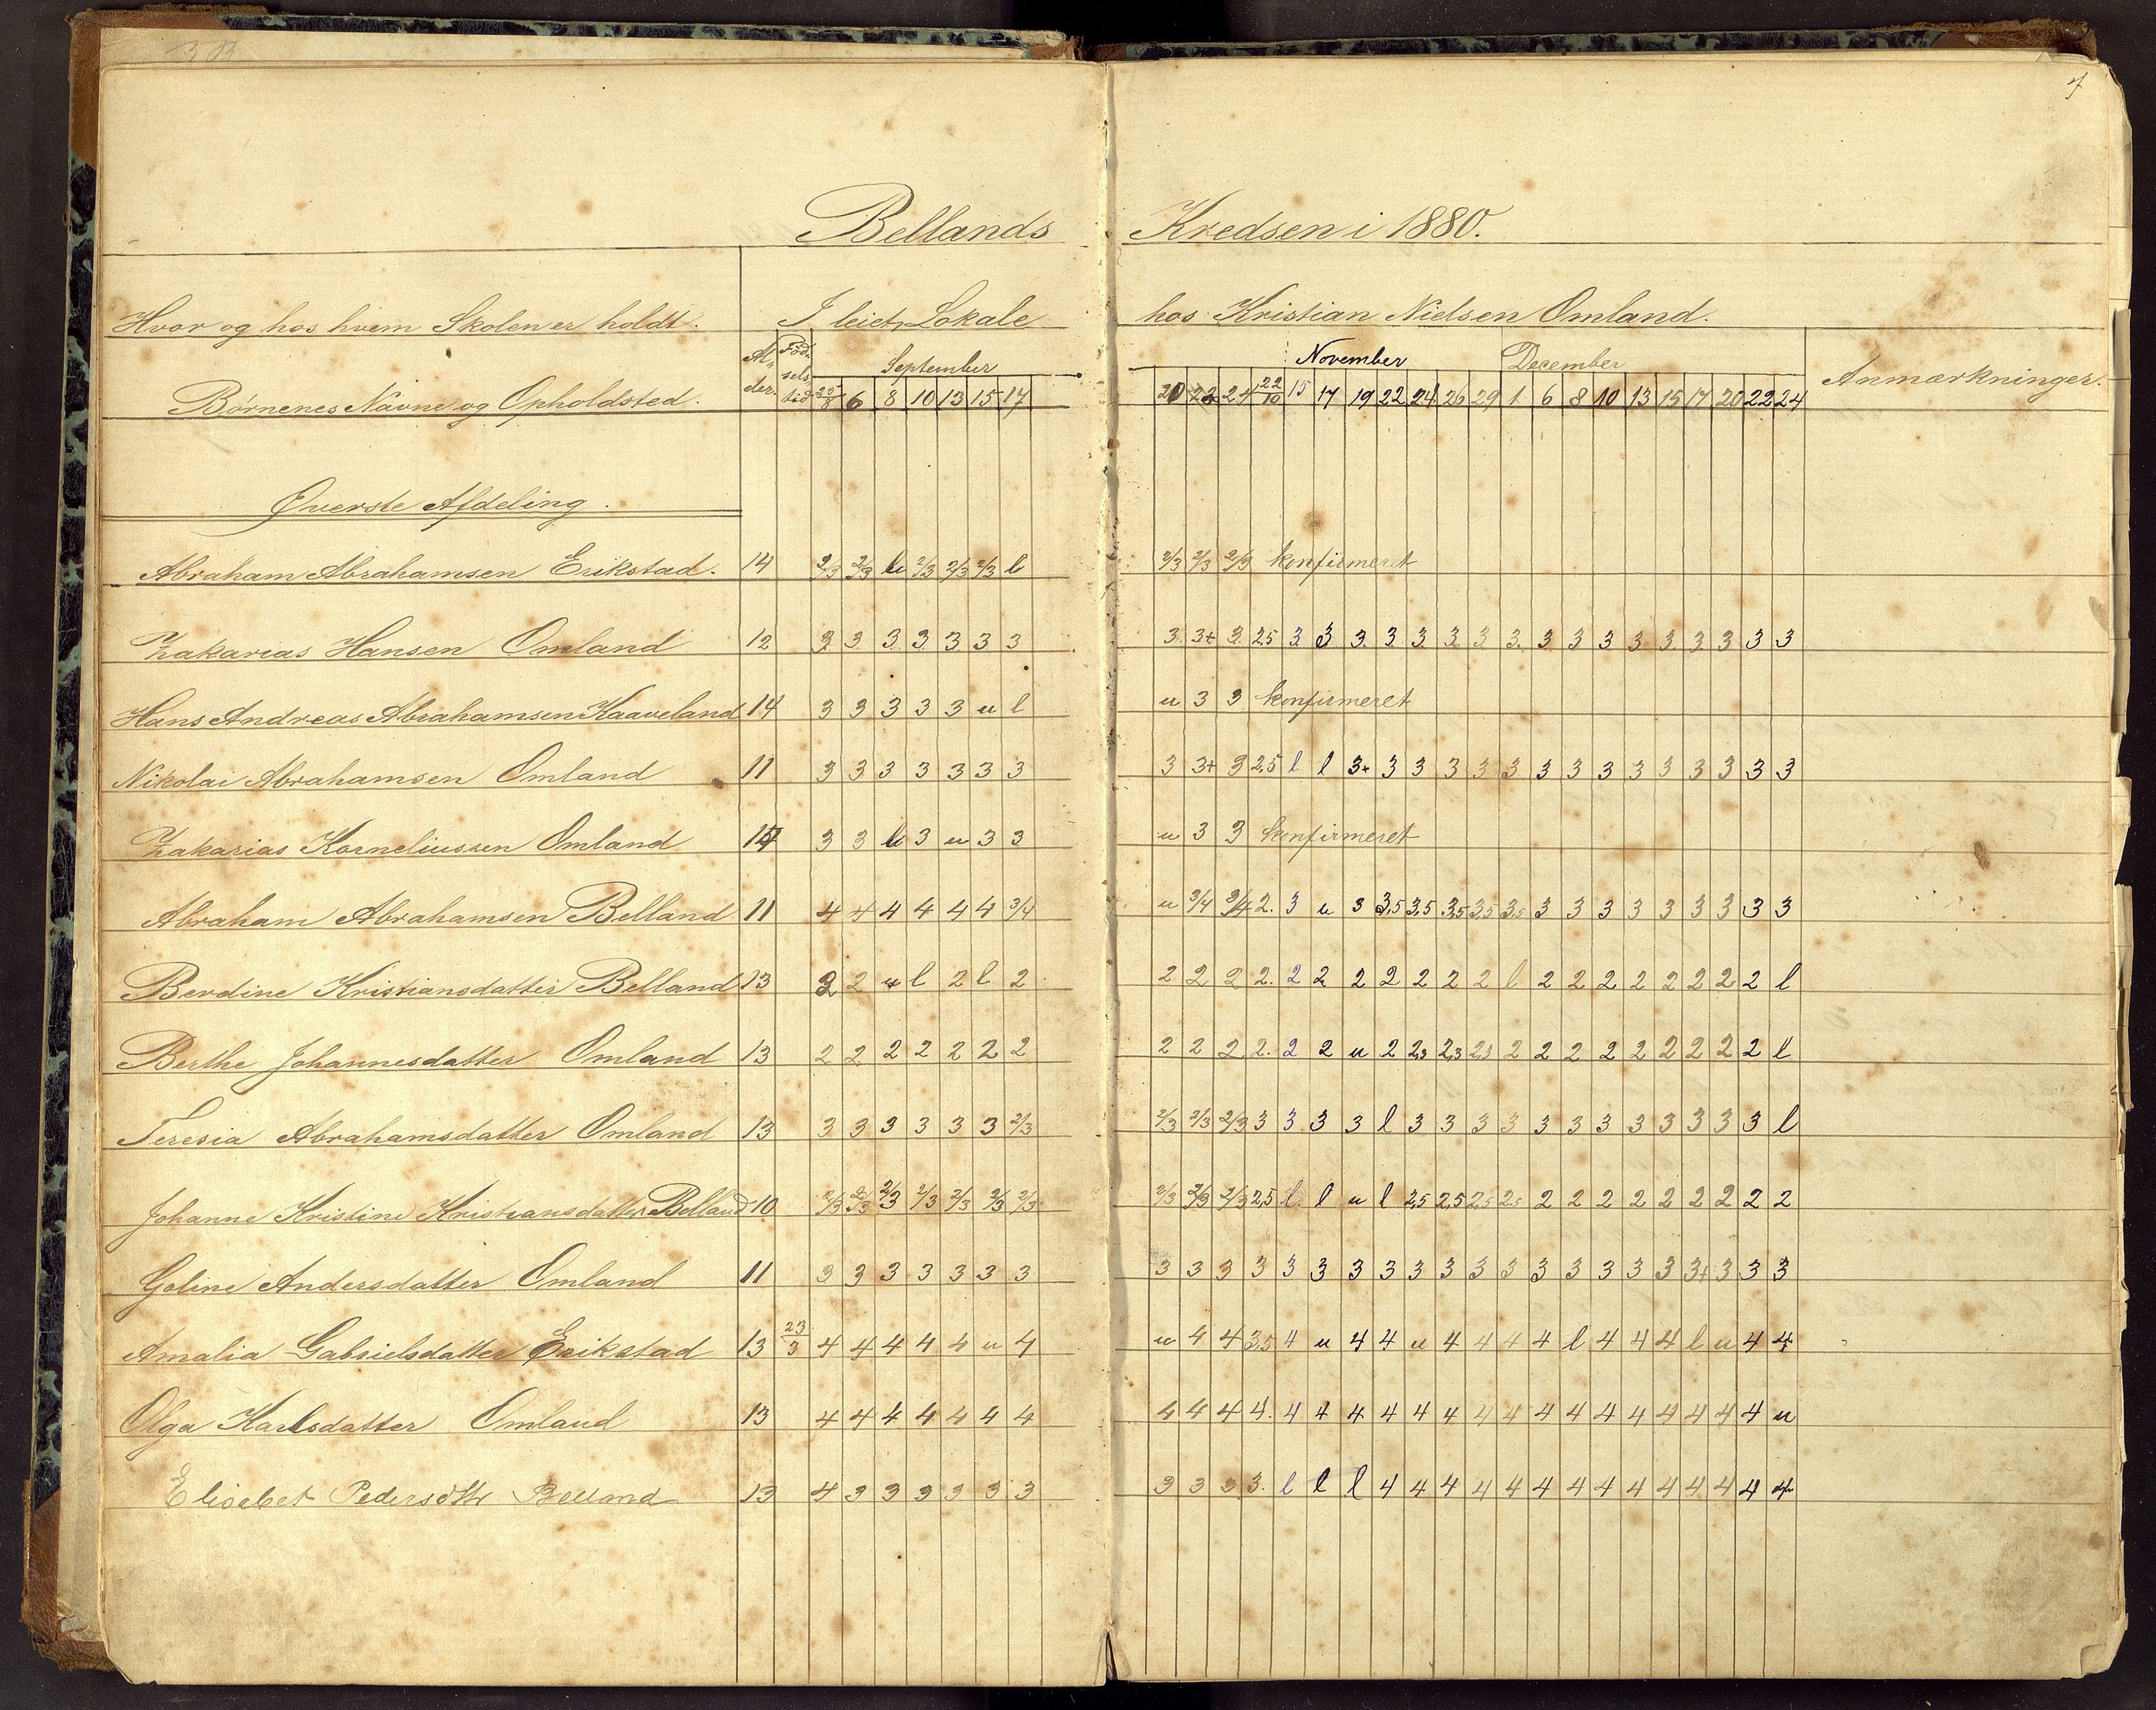 7
Bellands Kredsen i 1880.
Hvor og hos hvem Skolen er holdt. I leiet Lokale hos Kristian Nielsen Omland.
Al- der. Föd- sels- tid September November December Anmærkninger.
Børnenes Navne og Opholdsted. 25/8 6 8 10 13 15 17 20 22 24 22/10 15 17 19 22 24 26 29 1 6 8 10 13 15 17 20 22 24
Øverste Afdeling.
Abraham Abrahamsen Erikstad. 14 2/3 2/3 u 2/3 2/3 2/3 l 2/3 2/3 2/3 konfirmeret
Zakarias Hansen Omland 12 3 3 3 3 3 3 3 3 3+ 3 2,5 3 3 3 3 3 3 3 3 3 3 3 3 3 3 3 3 3
Hans Andreas Abrahamsen Kaaveland 14 3 3 3 3 3 u l u 3 3 konfirmeret
Nikolai Abrahamsen Omland 11 3 3 3 3 3 3 3 3 3+ 3 2,5 l l 3+ 3 3 3 3 3 3 3 3 3 3 3 3 3 3
Zakarias Korneliussen Omland 14 3 3 3 u 3 3 u 3 3 konfirmeret
Abraham Abrahamsen Belland 11 4 4 4 4 4 4 3/4 u 3/4 3/4 2. 3 u 3 3,5 3,5 3,5 3,5 3,5 3 3 3 3 3 3 3 3 3
Berdine Kristiansdatter Belland 13 2 2 u l 2 l 2 2 2 2 2. 2 2 2 2 2 2 2 l 2 2 2 2 2 2 2 2 l
Berthe Johannesdatter Omland 13 2 2 2 2 2 2 2 2 2 2 2. 2 2 u 2 2,3 2,3 2,3 2 2 2 2 2 2 2 2 2 l
Teresia Abrahamsdatter Omland 13 3 3 3 3 3 3 2/3 2/3 2/3 2/3 3 3 3 3 l 3 3 3 3 3 3 3 3 3 3 3 3 l
Johanne Kristine Kristiansdatter Belland 10 2/3 2/3 2/3 2/3 2/3 2/3 2/3 2/3 2/3 2/3 2,5 l l u l 2,5 2,5 2,5 2,5 2 2 2 2 2 2 2 2 2
Goline Andersdatter Omland 11 3 3 3 3 3 3 3 3 3 3 3 3 3 3 3 3 3 3 3 3 3 3 3 3 3+ 3 3 3
Amalia Gabrielsdatter Erikstad 13 23/3 4 4 4 4 4 u 4 u 4 4 3,5 4 u 4 4 u 4 4 4 4 l 4 4 4 l u 4 4
Olga Karlsdatter Omland 13 4 4 4 4 4 4 4 4 4 4 4. 4 4 4 4 4 4 4 4 4 4 4 4 4 4 4 4 u
Elisebet Pedersdtr Belland 13 4 3 3 3 3 3 3 3 3 3 3. l l l 4 4 4 4 4 4 4 4 4 4 4 4 4 4